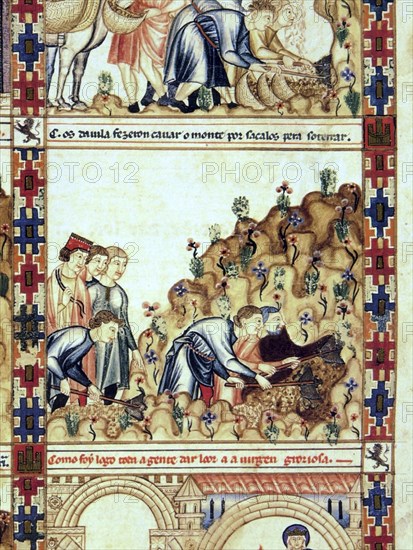 C. os da uila fezeron cauar o monte por sacalos pera soterrar.
Como foy logo toda a gente dar loor a a uirgen groriosa.